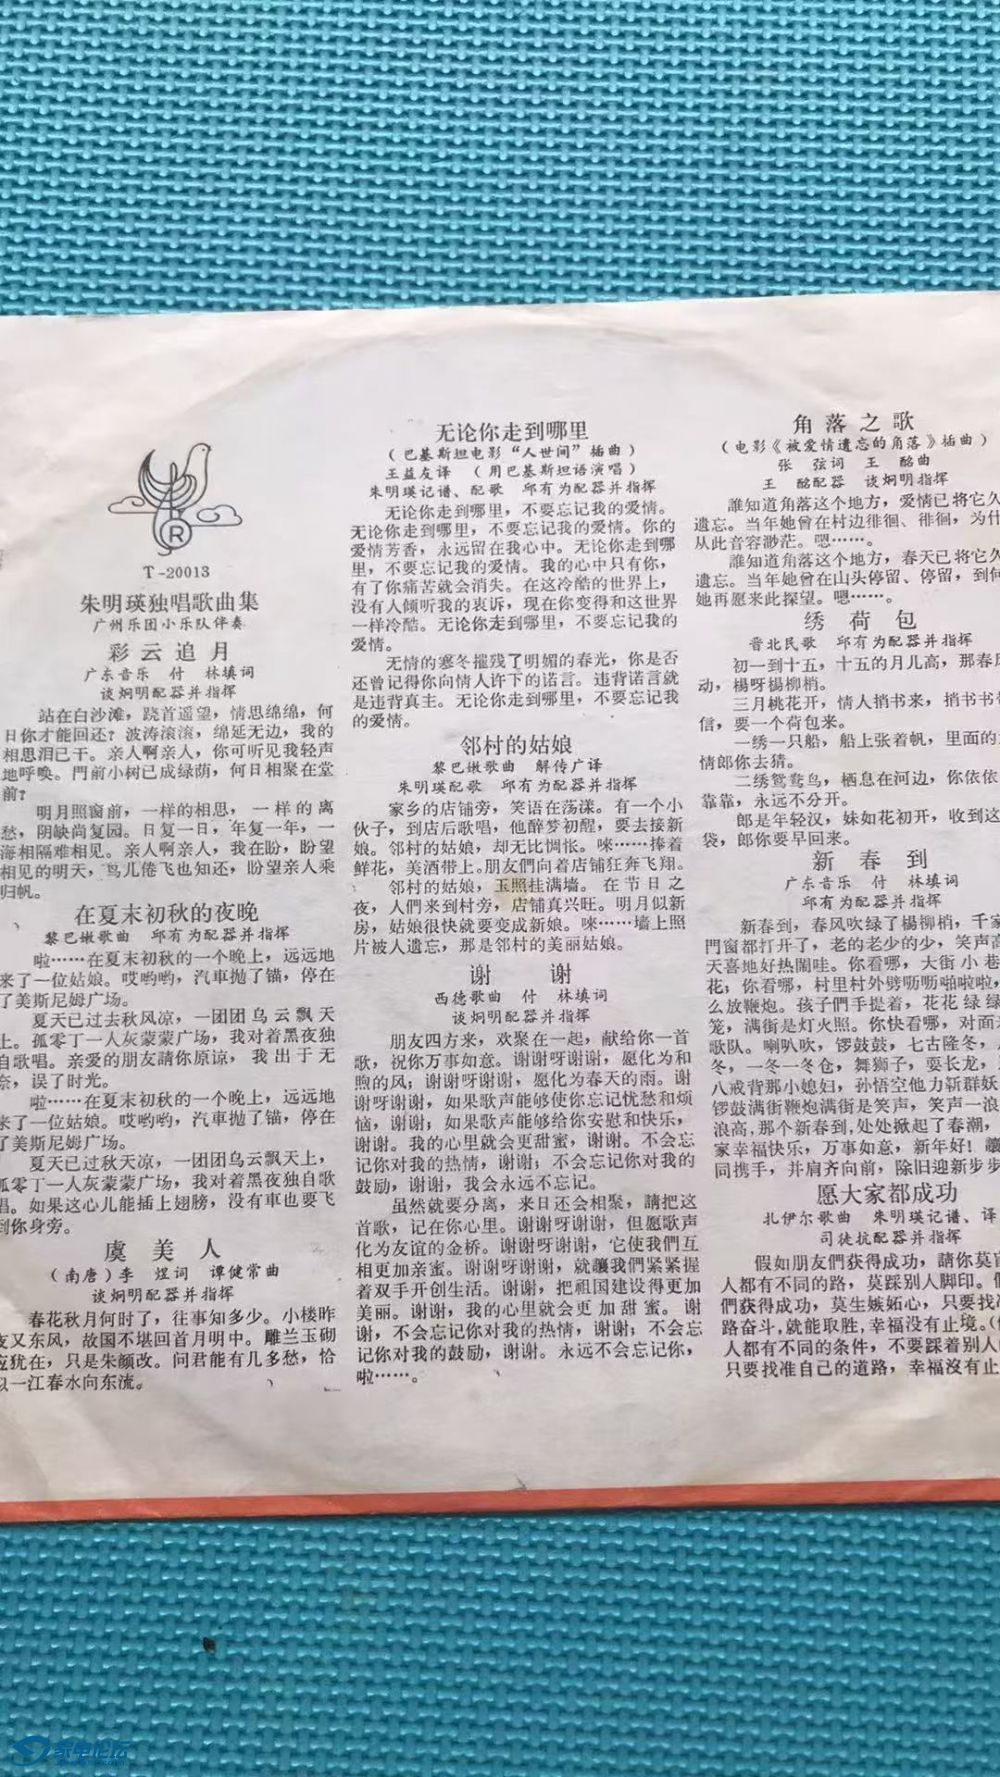 R
T-20013
朱明瑛独唱歌曲集
广州乐团小乐队伴奏
彩云追月
广东音乐 付 林填词
谈炯明配器并指挥
站在白沙滩，跷首遥望，情思绵绵，何
日你才能回还？波涛滚滚，绵延无边，我的
相思泪已干。亲人啊亲人，你可听见我轻声
地呼唤。門前小树已成绿荫，何日相聚在堂
前？
明月照窗前，一样的相思，一样的离
愁，阴缺尚复园。日复一日，年复一年，一
海相隔难相见。亲人啊亲人，我在盼，盼望
相见的明天，鸟儿倦飞也知还，盼望亲人乘
归帆。
在夏末初秋的夜晚
黎巴嫩歌曲 邱有为配器并指挥
啦……在夏末初秋的一个晚上，远远地
来了一位姑娘。哎哟哟，汽車抛了锚，停在
了美斯尼姆广场。
夏天已过去秋风凉，一团团乌云飘天
上。孤零丁一人灰蒙蒙广场，我对着黑夜独
自歌唱。亲爱的朋友請你原谅，我出于无
奈，误了时光。
啦……在夏末初秋的一个晚上，远远地
来了一位姑娘。哎哟哟，汽車抛了锚，停在
了美斯尼姆广场。
夏天已过秋天凉，一团团乌云飘天上，
孤零丁一人灰蒙蒙广场，我对着黑夜独自歌
唱。如果这心儿能插上翅膀，没有車也要飞
到你身旁。
虞美人
（南唐）李 煜词 谭健常曲
谈炯明配器并指挥
春花秋月何时了，往事知多少。小楼昨
夜又东风，故国不堪回首月明中。雕兰玉砌
应犹在，只是朱颜改。问君能有几多愁，恰
似一江春水向东流。
无论你走到哪里
（巴基斯坦电影“人世间”插曲）
王益友译 （用巴基斯坦语演唱）
朱明瑛记谱、配歌 邱有为配器并指挥
无论你走到哪里，不要忘记我的爱情。
无论你走到哪里，不要忘记我的爱情。你的
爱情芳香，永远留在我心中。无论你走到哪
里，不要忘记我的爱情。我的心中只有你，
有了你痛苦就会消失。在这冷酷的世界上，
没有人倾听我的衷诉，现在你变得和这世界
一样冷酷。无论你走到哪里，不要忘记我的
爱情。
无情的寒冬摧残了明媚的春光，你是否
还曾记得你向情人许下的诺言。违背诺言就
是违背真主。无论你走到哪里，不要忘记我
的爱情。
邻村的姑娘
黎巴嫩歌曲 解传广译
朱明瑛配歌 邱有为配器并指挥
家乡的店铺旁，笑语在荡漾。有一个小
伙子，到店后歌唱，他醉梦初醒，要去接新
娘。邻村的姑娘，却无比惆怅。唻……捧着
鲜花，美酒带上。朋友們向着店铺狂奔飞翔。
邻村的姑娘，玉照挂满墙。在节日之
夜，人們来到村旁，店铺真兴旺。明月似新
房，姑娘很快就要变成新娘。唻……墙上照
片被人遗忘，那是邻村的美丽姑娘。
谢谢
西德歌曲 付 林填词
谈炯明配器并指挥
朋友四方来，欢聚在一起，献给你一首
歌，祝你万事如意。谢谢呀谢谢，愿化为和
煦的风；谢谢呀谢谢，愿化为春天的雨。谢
谢呀谢谢，如果歌声能够使你忘记忧愁和烦
恼，谢谢；如果歌声能够给你安慰和快乐，
谢谢。我的心里就会更甜蜜，谢谢。不会忘
记你对我的热情，谢谢；不会忘记你对我的
鼓励，谢谢，我会永远不忘记。
虽然就要分离，来日还会相聚，請把这
首歌，记在你心里。谢谢呀谢谢，但愿歌声
化为友谊的金桥。谢谢呀谢谢，它使我們互
相更加亲蜜。谢谢呀谢谢，就讓我們紧紧握
着双手开创生活。谢谢，把祖国建设得更加
美丽。谢谢，我的心里就会更加甜蜜。谢
谢，不会忘记你对我的热情，谢谢；不会忘
记你对我的鼓励，谢谢。永远不会忘记你，
啦……。
角落之歌
（电影《被爱情遗忘的角落》插曲）
张 弦词 王 酩曲
王 酩配器 谈炯明指挥
誰知道角落这个地方，爱情已将它久
遗忘。当年她曾在村边徘徊、徘徊，为什
从此音容渺茫。嗯……。
誰知道角落这个地方，春天已将它久
遗忘。当年她曾在山头停留、停留，到何
她再愿来此探望。嗯……。
绣荷包
晋北民歌 邱有为配器并指挥
初一到十五，十五的月儿高，那春风
动，楊呀楊柳梢。
三月桃花开，情人捎书来，捎书书带
信，要一个荷包来。
一绣一只船，船上张着帆，里面的
情郎你去猜。
二绣鸳鸯鸟，栖息在河边，你依依
靠靠，永远不分开。
郎是年轻汉，妹如花初开，收到这
袋，郎你要早回来。
新春到
广东音乐 付 林填词
邱有为配器并指挥
新春到，春风吹绿了楊柳梢，千家
門窗都打开了，老的老少的少，笑声高
天喜地好热閙哇。你看哪，大街小巷
花；你看哪，村里村外劈叻叻啪啦啦，
么放鞭炮。孩子們手提着，花花绿绿
笼，满街是灯火照。你快看哪，对面
歌队。喇叭吹，锣鼓鼓，七古隆冬，
冬，一冬一冬仓，舞狮子，耍长龙，
八戒背那小媳妇，孙悟空他力斩群妖
锣鼓满街鞭炮满街是笑声，笑声一浪
浪高，那个新春到，处处掀起了春潮，
家幸福快乐，万事如意，新年好！讓
同携手，并肩齐向前，除旧迎新步步
愿大家都成功
扎伊尔歌曲 朱明瑛记谱、译
司徒抗配器并指挥
假如朋友們获得成功，請你莫盲
人都有不同的路，莫踩别人脚印。
們获得成功，莫生嫉妬心，只要找
路奋斗，就能取胜，幸福没有止境。
人都有不同的条件，不要踩着别人
只要找准自己的道路，幸福沒有止
家电论坛